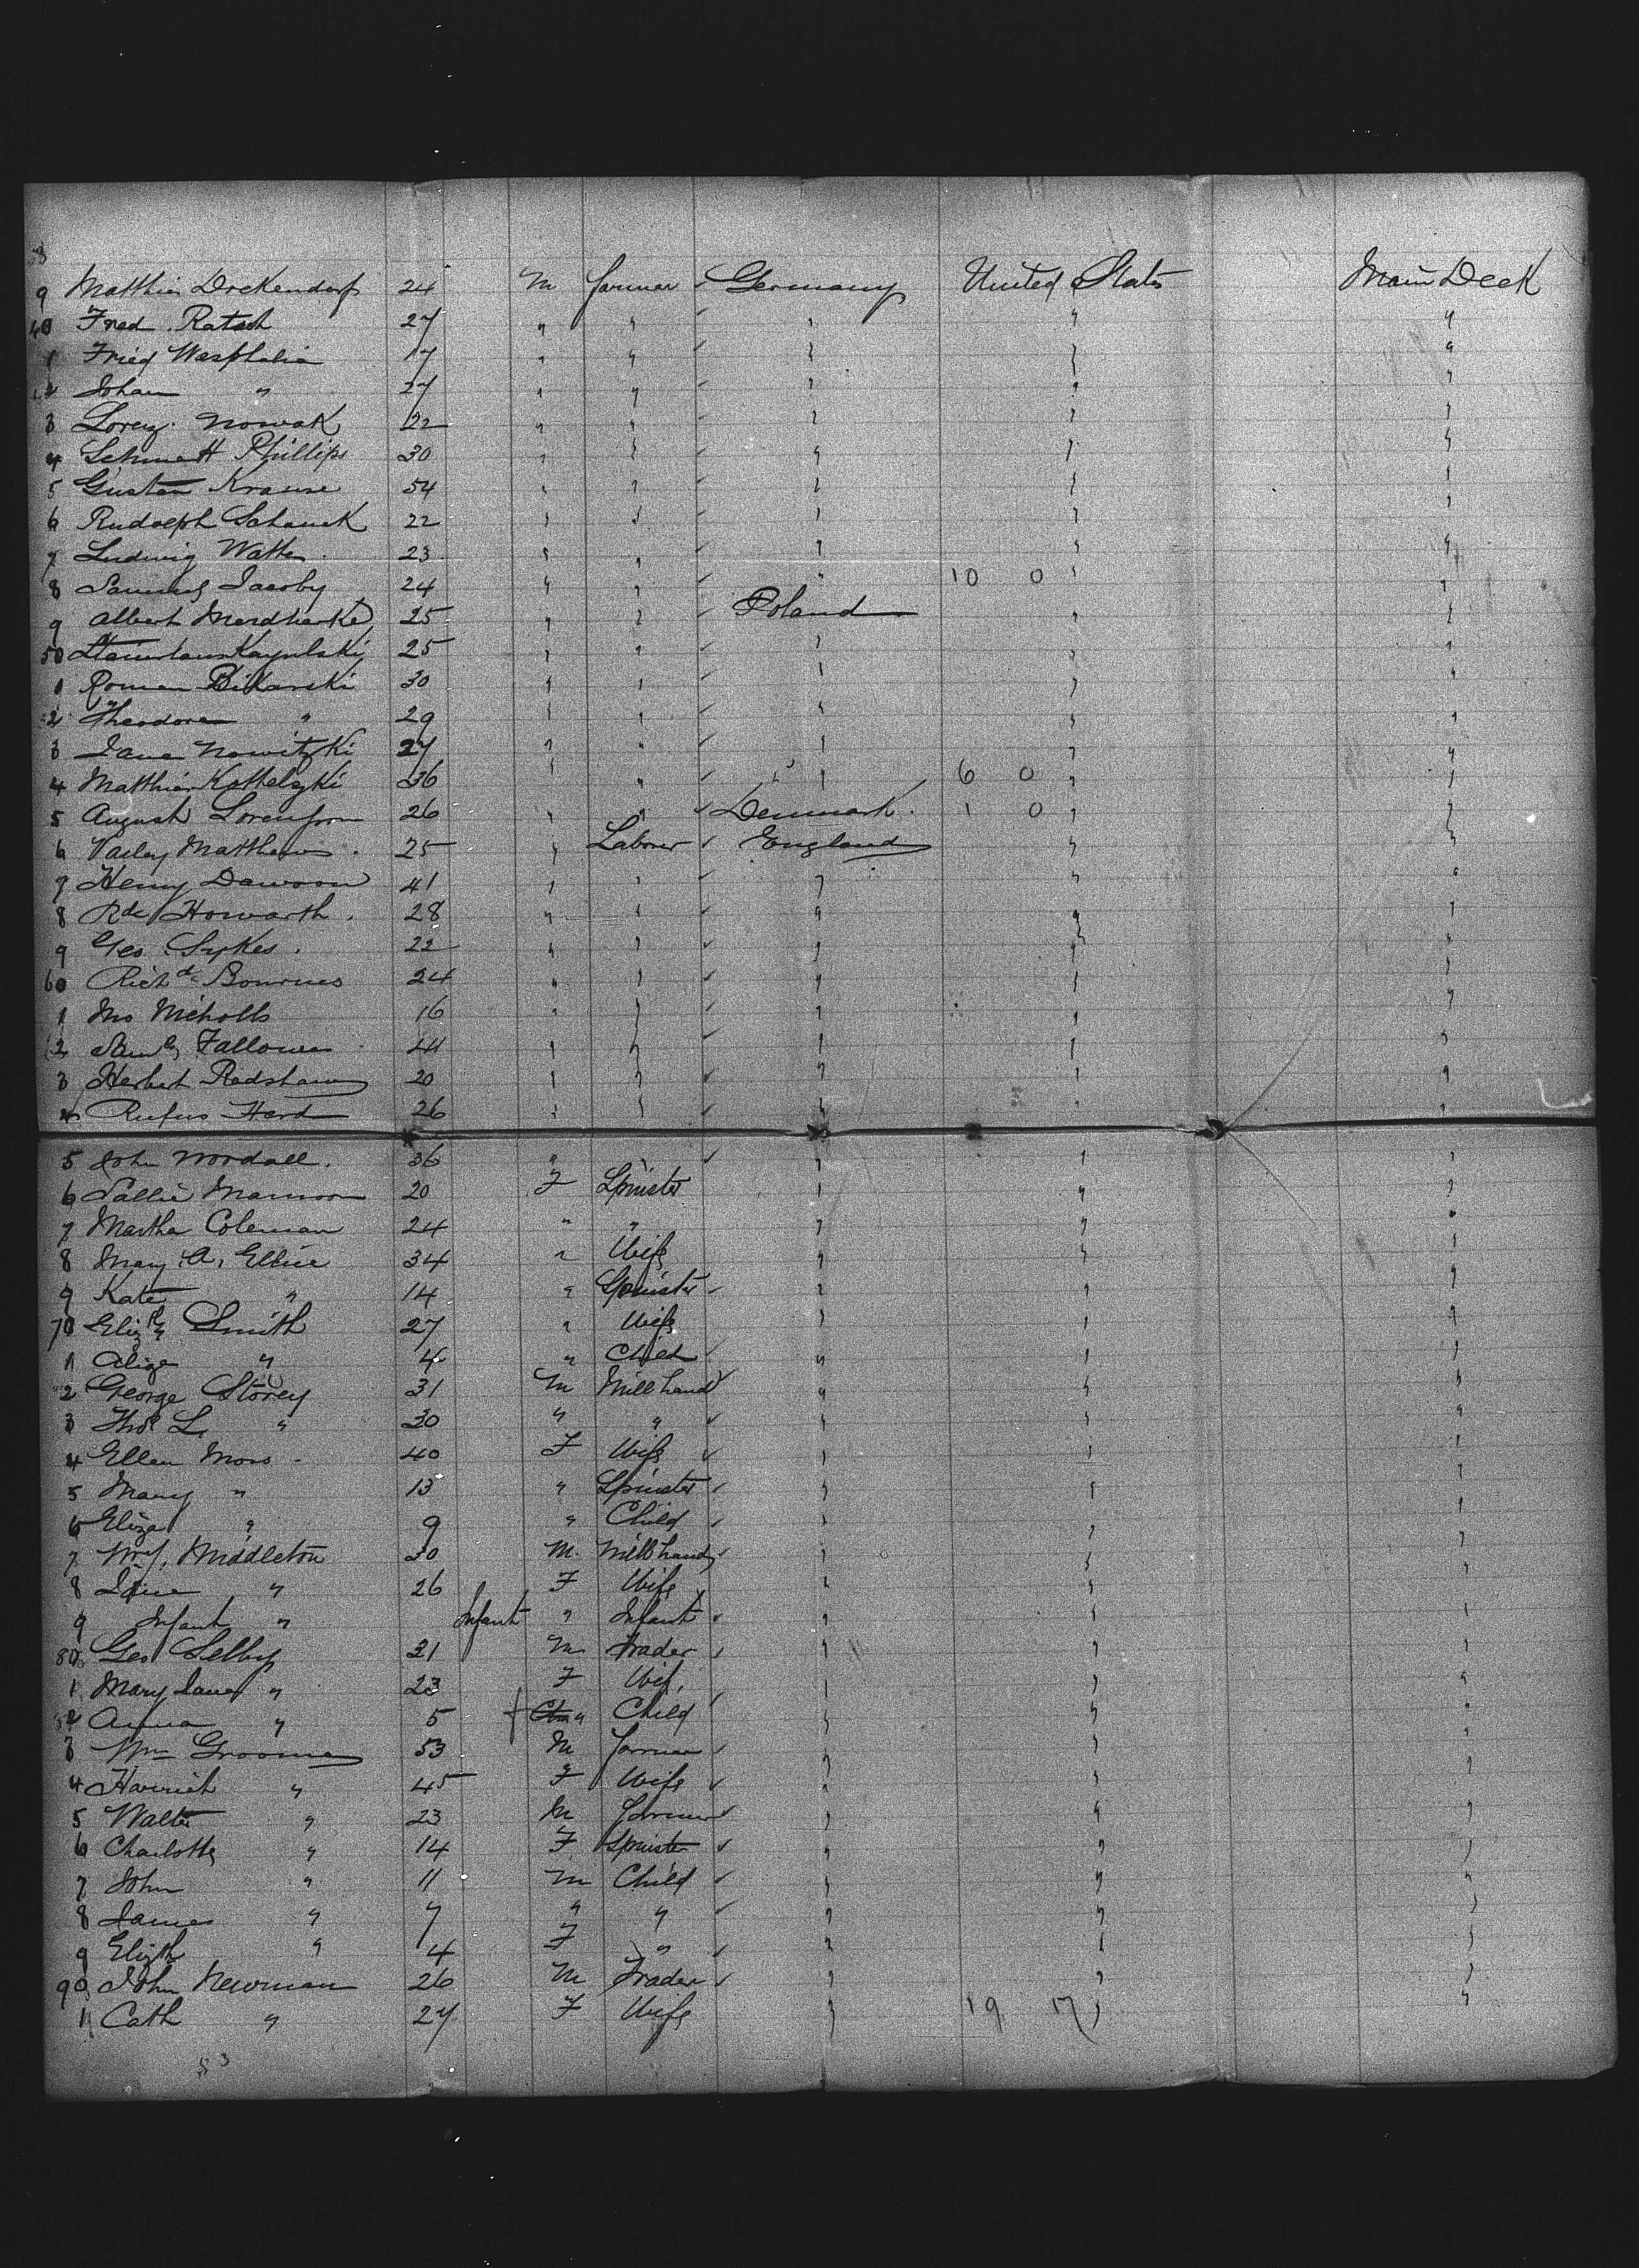 38
9 Matthias Dockendorf 24 M Farmer Germany United States Main Deck
40 Fred. Ratsch 27 " " " " "
1 Fried Westphalia 17 " " " " "
42 Johan " 27 " " " " "
3 Lorenz Nowak 22 " " " " "
4 Schmett Phillips 30 " " " " "
5 Gustav Krause 54 " " " " "
6 Rudolph Schauck 22 " " " " "
7 Ludwig Watter 23 " " " " "
8 Samuel Jacoby 24 " " " 10 0 " "
9 Albert 25 " " Poland " "
50 25 " " " " "
1 Roman Bikarski 30 " " " " "
2 Theodore " 29 " " " " "
3 Nowitzki 27 " " " " "
4 Matthias 36 " " " 6 0 " "
5 August 26 " " Denmark. 1 0 " "
6 Varley Matthews. 25 " Laborer England " "
7 Henry Dawson 41 " " " " "
8 Rd Howarth. 28 " " " " "
9 Geo. Sykes. 22 " " " " "
60 Richd Bournes 24 " " " " "
1 Jno Nicholls 16 " " " " "
62 Saml Fallowes 44 " " " " "
3 Herbert Radshaw 20 " " " " "
4 Rufus Herd 26 " " " " "
5 John Woodall. 36 " " " " "
6 Sallie 20 F Spinster " " "
7 Martha Coleman 24 " " " " "
8 Mary A. 34 " Wife " " "
9 Kate " 14 " Spinster " " "
70 Elizth Smith 27 " Wife " " "
1 Alice " 4 " Child " " "
2 George Storey 31 M Mill hand " " "
3 Thos L. " 30 " " " " "
4 Ellen Moss 40 F Wife " " "
5 Mary " 13 " Spinster " " "
6 Eliza " 9 " Child " " "
7 Wm. Middleton 30 M. Mill hand " " "
8 Jane " 26 F Wife " " "
9 Infant " Infant " Infant " " "
80 Geo Selby 31 M Trader " " "
1 Mary Jane " 23 F Wife " " "
82 Anna " 5 " Child " " "
3 Wm Grooms 53 M Farmer " " "
4 Harriet " 45 F Wife " " "
5 Walter " 23 M Farmer " " "
6 Charlotte " 14 F Spinster " " "
7 John " 11 M Child " " "
8 James " 7 " " " " "
9 Elizth " 4 F " " " "
90 John Newman 26 M Trader " " "
1 Cath " 27 F Wife " 19 17 " "
53